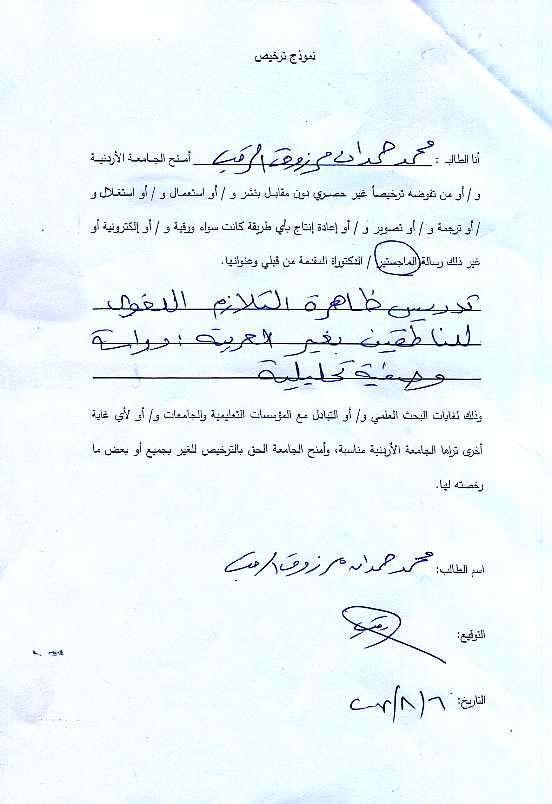 نموذج ترخيص
أنا الطالب : محمد حمدان مرزوق الرقب أمنح الجامعة الأردنية
و / أو من تفوضه ترخيصاً غير حصري دون مقابل بنشر و / أو استعمال و / أو استغلال و
/ أو ترجمة و / أو تصوير و / أو إعادة إنتاج بأي طريقة كانت سواء ورقية و / أو إلكترونية أو
غير ذلك رسالة الماجستير / الدكتوراة المقدمة من قبلي وعنوانها.
تدريس ظاهرة التلازم اللغوي
للناطقين بغير العربية : دراسة
وصفية تحليلية
وذلك لغايات البحث العلمي و / أو التبادل مع المؤسسات التعليمية والجامعات و / أو لأي غاية
أخرى تراها الجامعة الأردنية مناسبة، وأمنح الجامعة الحق بالترخيص للغير بجميع أو بعض ما
رخصته لها.
اسم الطالب: محمد حمدان مرزوق الرقب
التوقيع:
التاريخ: ٦/٨/